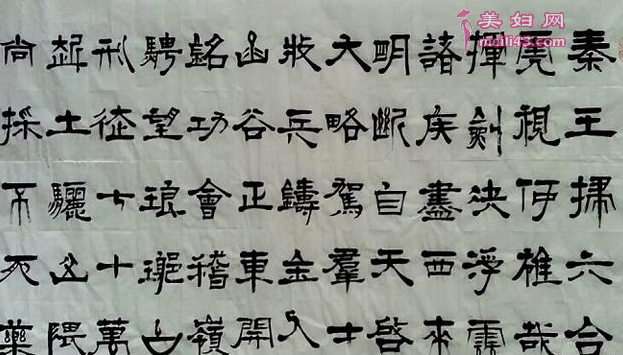 秦王掃六合
虎視伊雄哉
揮劍決浮雲
諸侯盡西來
明断自天啓
大略駕羣才
收兵鑄金人
函谷正東開
銘功會稽嶺
騁望琅琊台
刑徒七十萬
起土驪山隈
尚採不死藥
美妇网
meili43.com